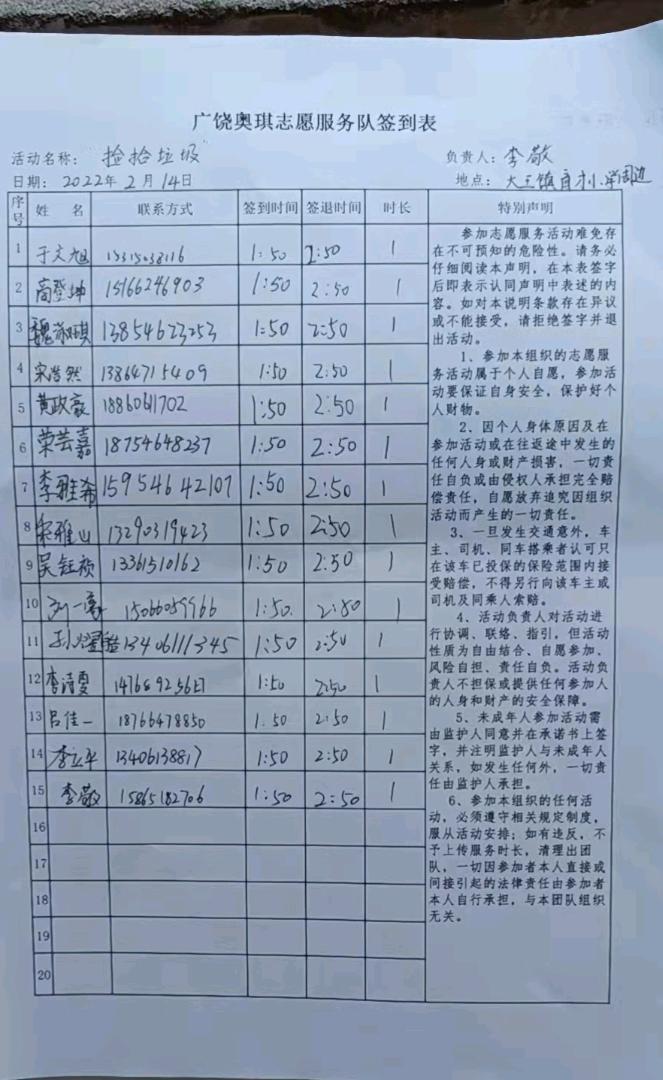 广饶奥琪志愿服务队签到表
活动名称: 捡拾垃圾 负责人: 李敬
日期: 2022年2月14日 地点: 大王镇 小学周边
序号 姓 名 联系方式 签到时间 签退时间 时长 特别声明
1 于文旭 1:50 2:50 1
2 高登坤 15166246903 1:50 2:50 1
3 13854623253 1:50 2:50 1
4 宋浩然 13864715409 1:50 2:50 1
5 黄政豪 1886061702 1:50 2:50 1
6 荣芸嘉 18754648237 1:50 2:50 1
7 李雅希 15954642107 1:50 2:50 1
8 宋雅山 13290319423 1:50 2:50 1
9 吴钰祯 13361510162 1:50 2:50 1
10 刘一豪 15066059966 1:50. 2:50 1
11 13406111345 1:50 2:50 1
12 李清雯 1:50 2:50 1
13 吕佳一 18766478850 1:50 2:50 1
14 李立平 13406138817 1:50 2:50 1
15 李敬 15865182706 1:50 2:50 1
16
17
18
19
20
参加志愿服务活动难免存
在不可预知的危险性。请务必
仔细阅读本声明，在本表签字
后即表示认同声明中表述的内
容。如对本说明条款存在异议
或不能接受，请拒绝签字并退
出活动。
1、参加本组织的志愿服
务活动属于个人自愿，参加活
动要保证自身安全，保护好个
人财物。
2、因个人身体原因及在
参加活动或在往返途中发生的
任何人身或财产损害，一切责
任自负或由侵权人承担完全赔
偿责任，自愿放弃追究因组织
活动而产生的一切责任。
3、一旦发生交通意外，车
主、司机、同车搭乘者认可只
在该车已投保的保险范围内接
受赔偿，不得另行向该车主或
司机及同乘人索赔。
4、活动负责人对活动进
行协调、联络、指引，但活动
性质为自由结合、自愿参加、
风险自担、责任自负。活动负
责人不担保或提供任何参加人
的人身和财产的安全保障。
5、未成年人参加活动需
由监护人同意并在承诺书上签
字，并注明监护人与未成年人
关系，如发生任何外，一切责
任由监护人承担。
6、参加本组织的任何活
动，必须遵守相关规定制度，
服从活动安排；如有违反，不
予上传服务时长，清理出团
队，一切因参加者本人直接或
间接引起的法律责任由参加者
本人自行承担，与本团队组织
无关。